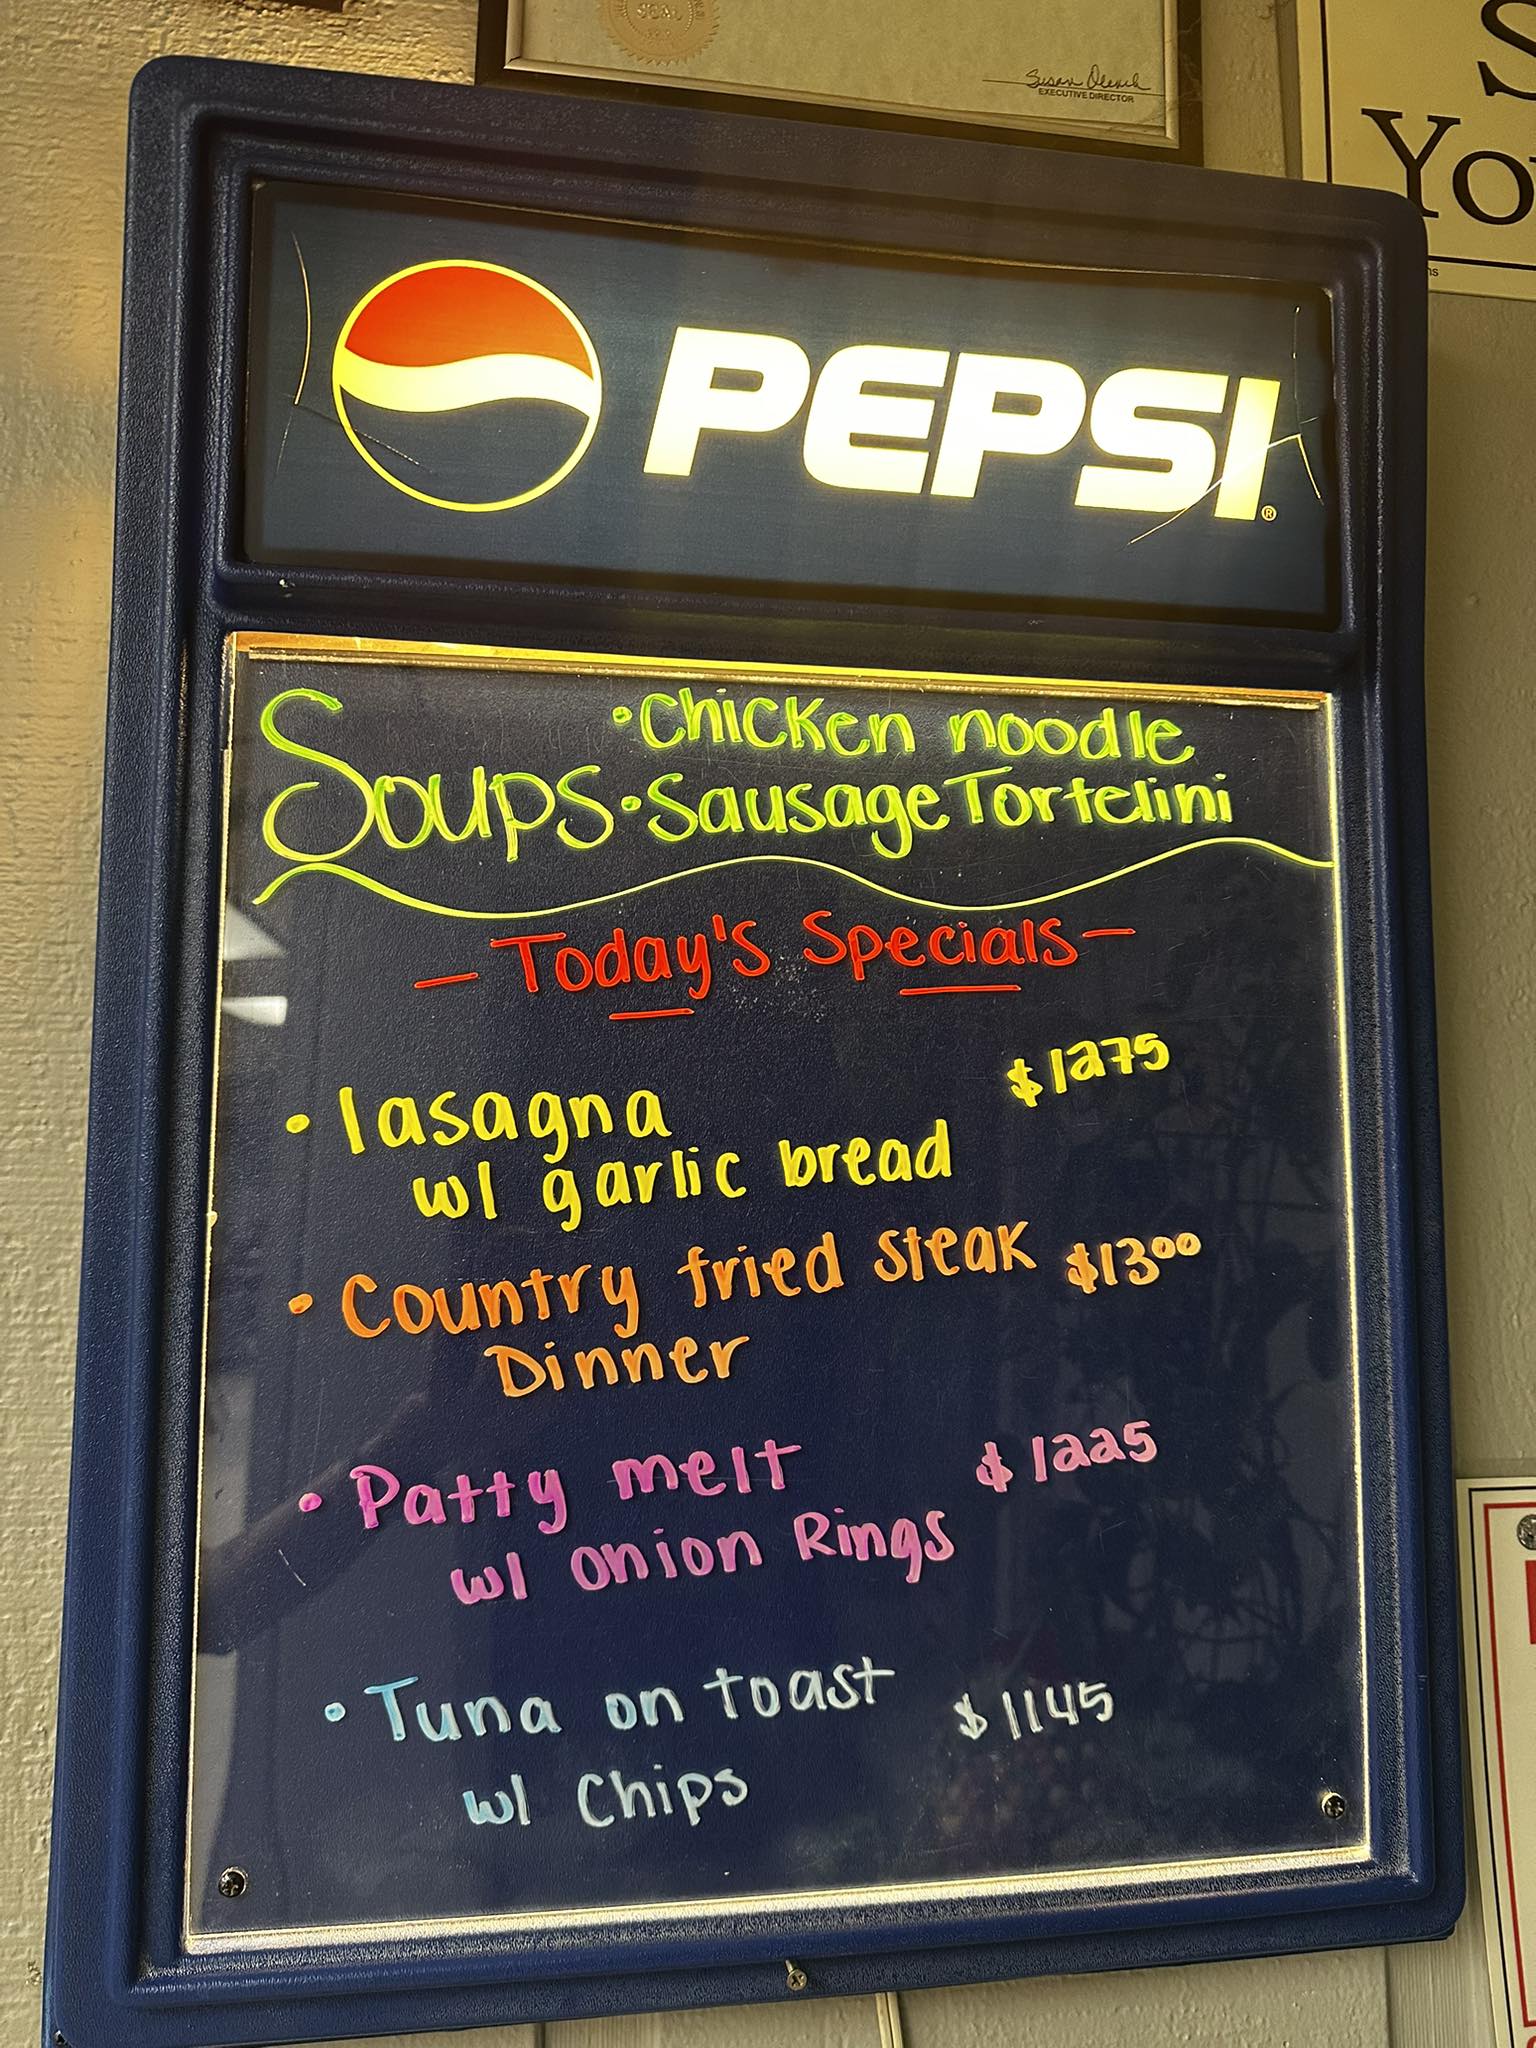 SEAL
EXECUTIVE DIRECTOR
PEPSI®
Soups
• Chicken noodle
• Sausage Tortelini
- Today's Specials -
• lasagna $1275
w/ garlic bread
• Country fried steak $13⁰⁰
Dinner
• Patty melt $1225
w/ onion Rings
• Tuna on toast $1145
w/ Chips